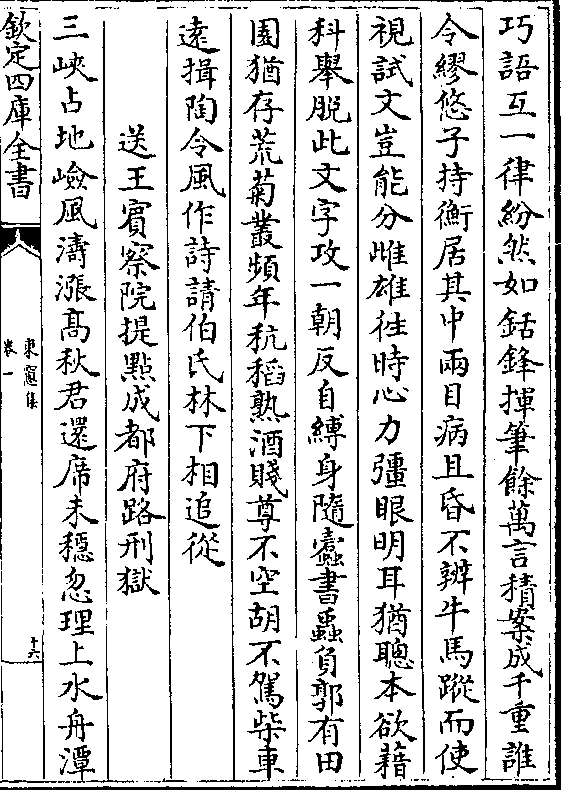 巧語互一律紛然如銛鋒揮筆餘萬言積案成千重誰
令繆悠子持衡居其中兩目病且昏不辨牛馬蹤而使
視試文豈能分雌雄徃時心力彊眼明耳猶聰本欲藉
科舉脱此文字攻一朝反自縛身隨蠧書蟲負郭有田
園猶存荒菊叢頻年秔稻熟酒賤尊不空胡不駕柴車
遠揖陶令風作詩請伯氏林下相追從
送王賓察院提㸃成都府路刑獄
三峽占地嶮風濤漲髙秋君還席未穩忽理上水舟潭
欽定四庫全書
東窻集
卷一
十六